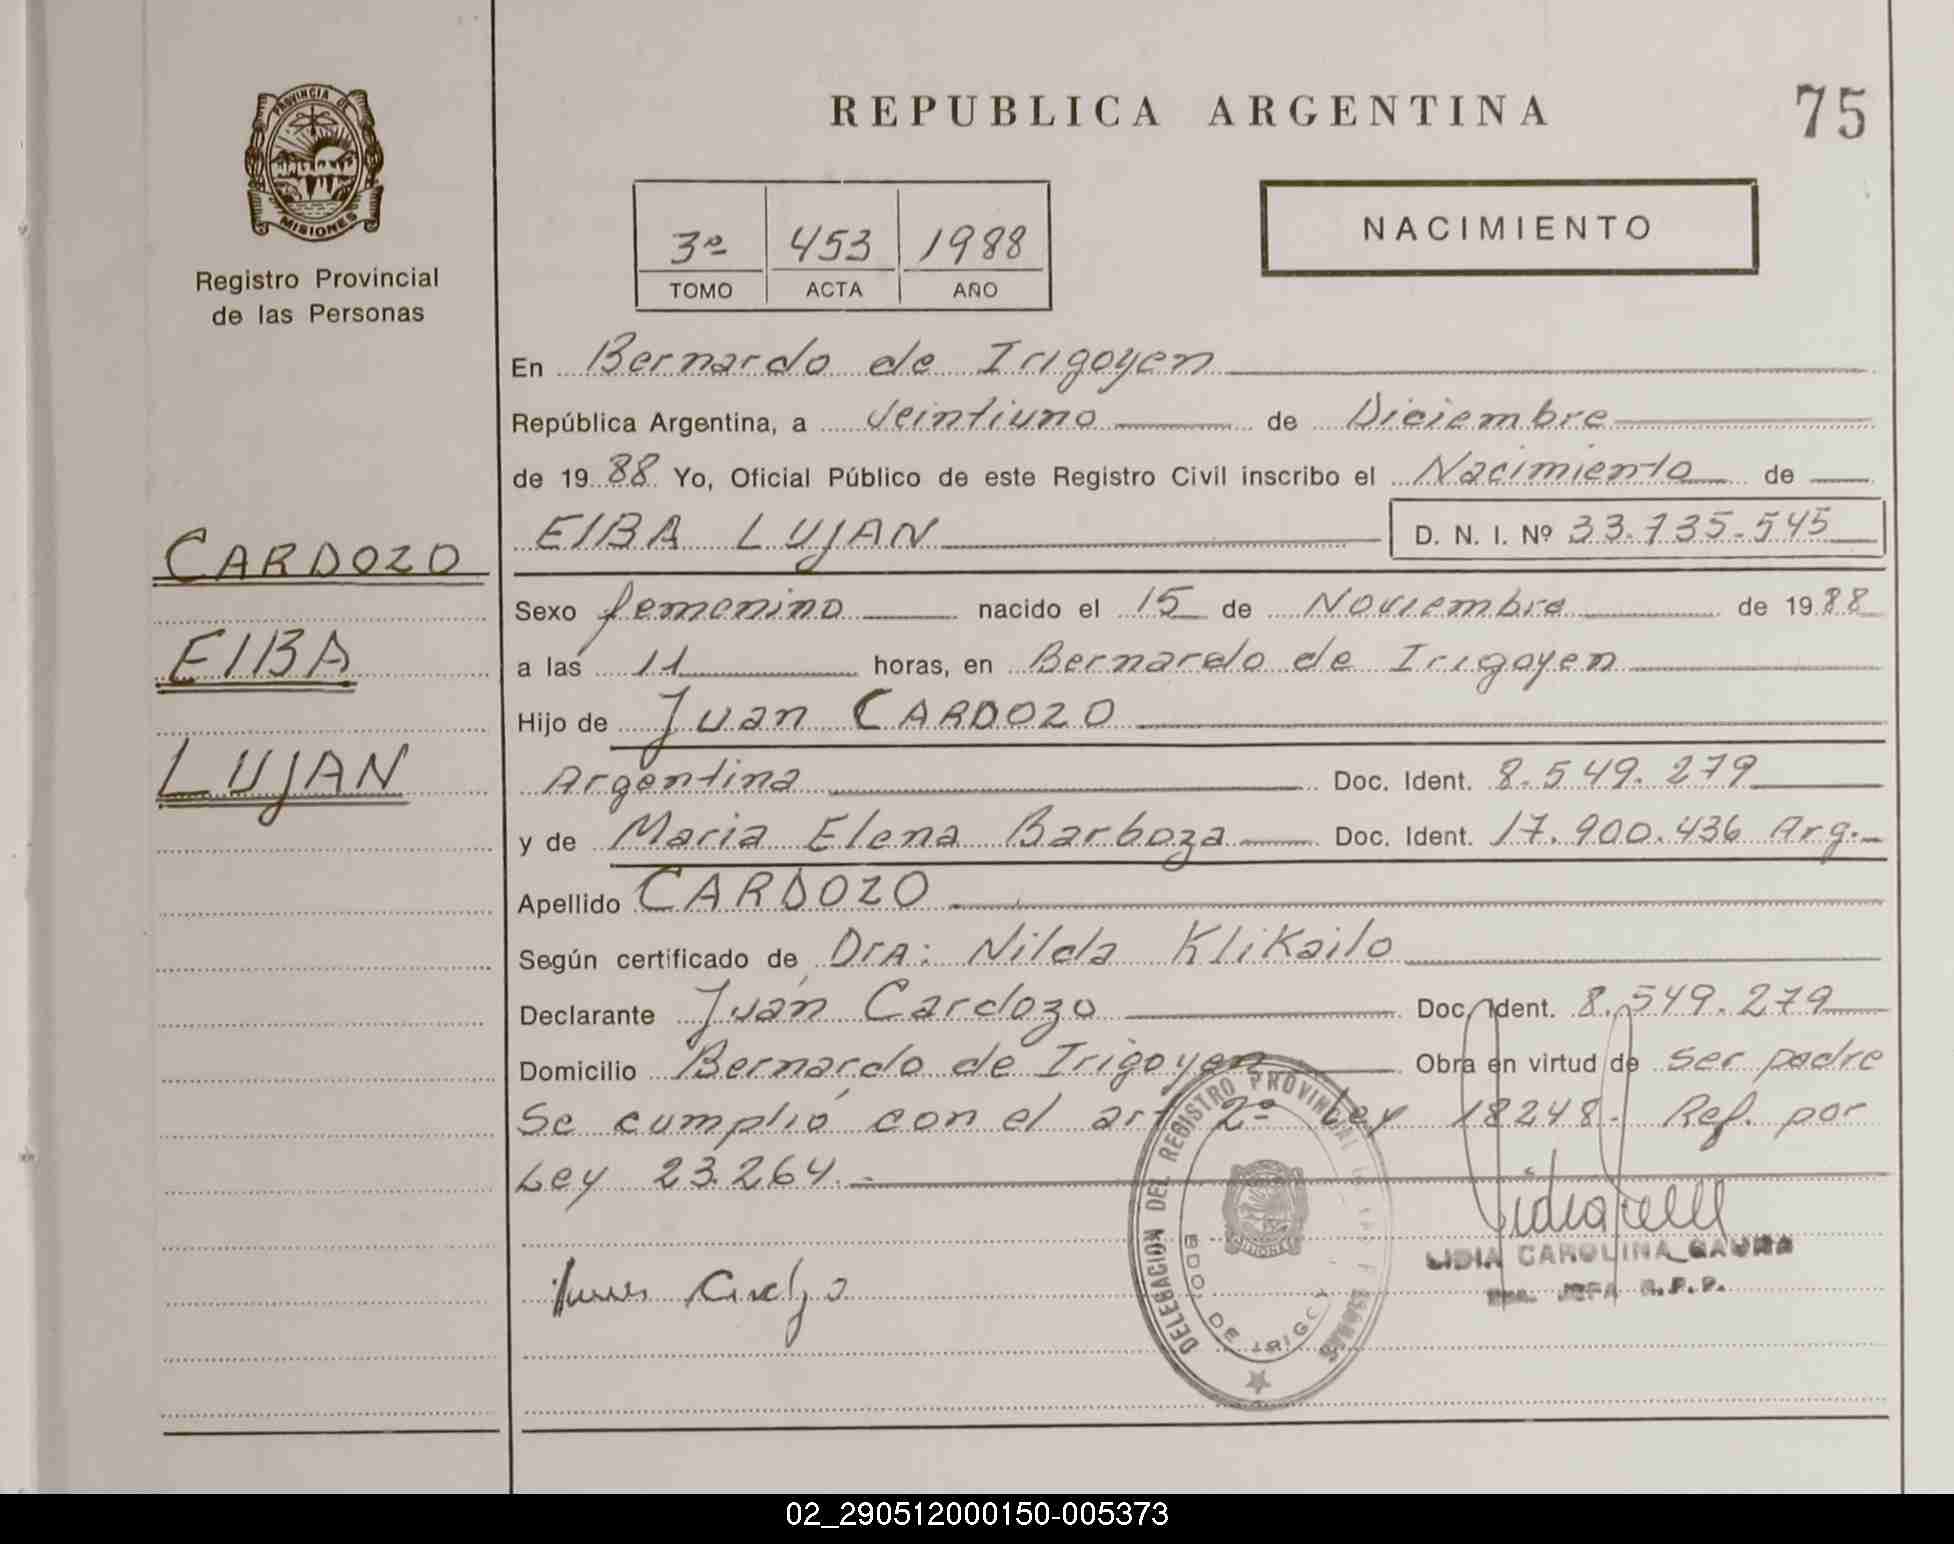 PROVINCIA DE
MISIONES
Registro Provincial
de las Personas
CARDOZO
EIBA
LUJAN
REPUBLICA ARGENTINA
75
3º 453 1988
TOMO ACTA AÑO
NACIMIENTO
En Bernardo de Irigoyen
República Argentina, a Veintiuno de Diciembre
de 1988 Yo, Oficial Público de este Registro Civil inscribo el Nacimiento de
EIBA LUJAN D. N. I. Nº 33.735.545
Sexo femenino nacido el 15 de Noviembre de 1988
a las 11 horas, en Bernardo de Irigoyen
Hijo de Juan CARDOZO
Argentina Doc. Ident. 8.549.279
y de Maria Elena Barboza Doc. Ident. 17.900.436 Arg.
Apellido CARDOZO
Según certificado de Dra: Nilda Klikailo
Declarante Juan Cardozo Doc. Ident. 8.549.279
Domicilio Bernardo de Irigoyen Obra en virtud de ser padre
Se cumplió con el art 2º Ley 18248- Ref. por
Ley 23.264.-
DELEGACION DEL REGISTRO PROVINCIAL
BDO. DE IRIGOY
LIDIA CAROLINA
JEFA R.P.P.
02_290512000150-005373